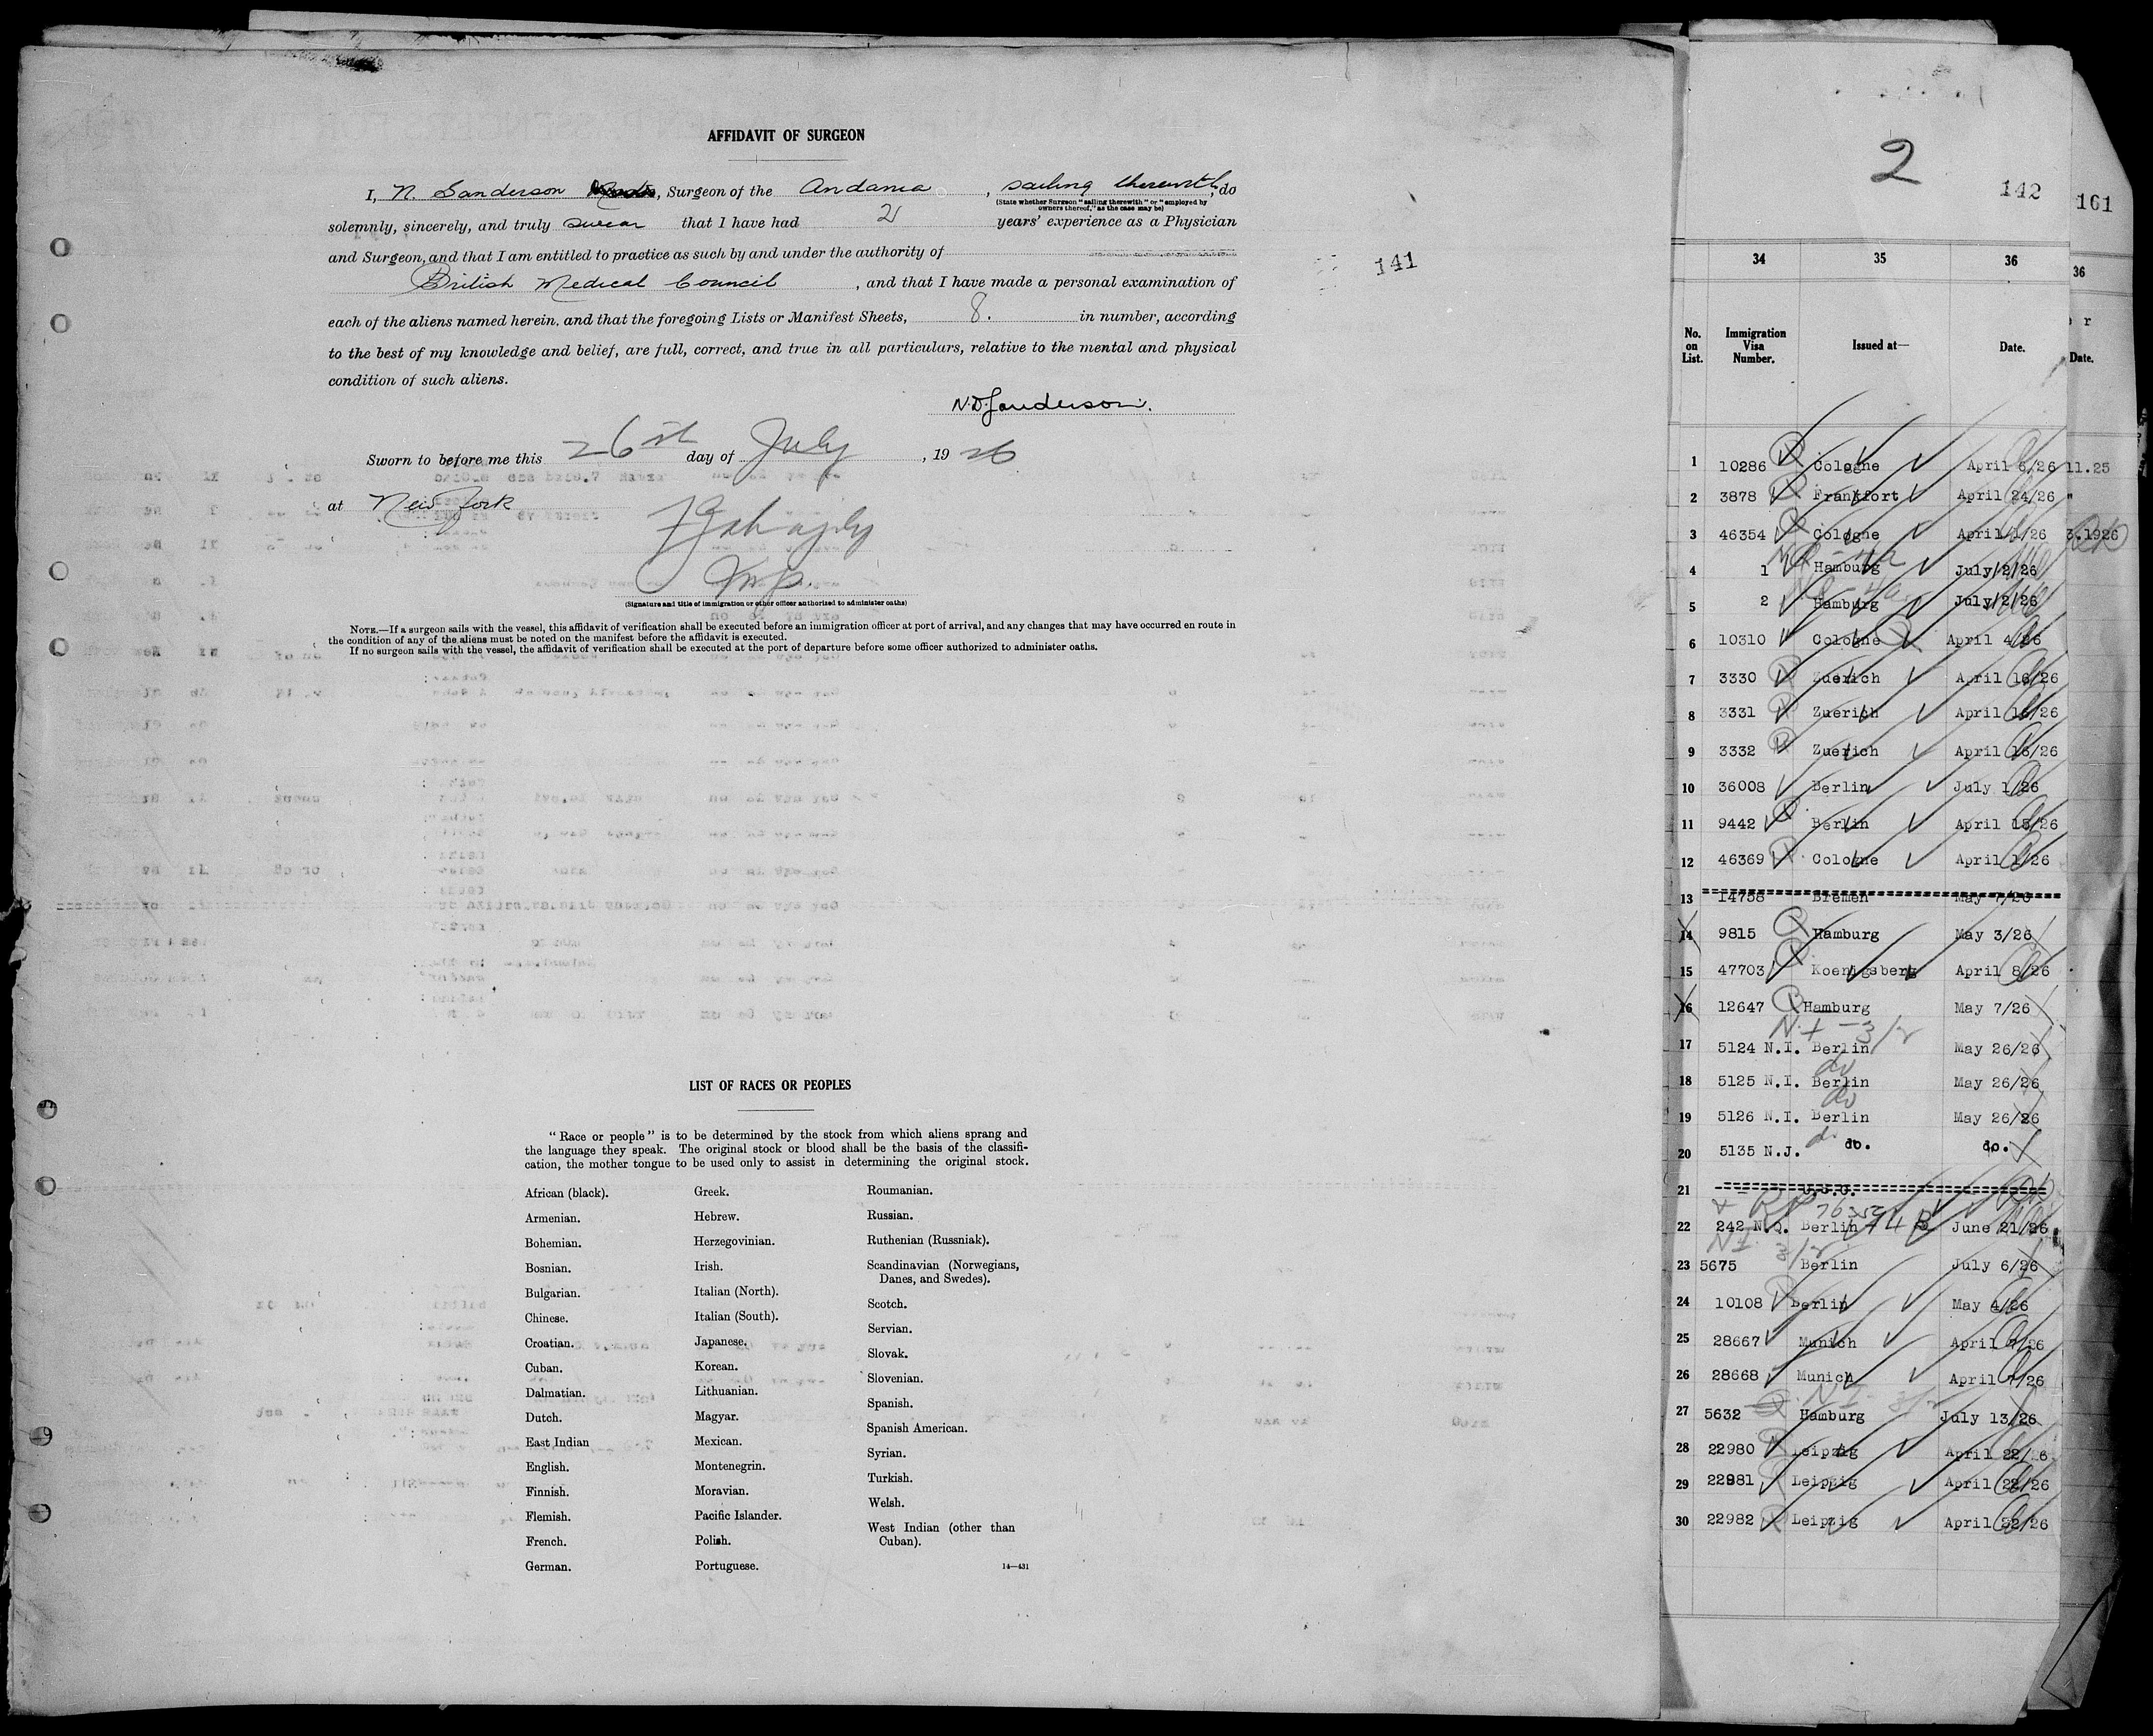 AFFIDAVIT OF SURGEON
I, N. Sanderson , Surgeon of the Andania , sailing therewith, do
(State whether Surgeon "sailing therewith" or "employed by
owners thereof," as the case may be)
solemnly, sincerely, and truly swear that I have had 2 years' experience as a Physician
and Surgeon, and that I am entitled to practice as such by and under the authority of
British Medical Council , and that I have made a personal examination of
each of the aliens named herein, and that the foregoing Lists or Manifest Sheets, 8. in number, according
to the best of my knowledge and belief, are full, correct, and true in all particulars, relative to the mental and physical
condition of such aliens.
N.D. Sanderson.
Sworn to before me this 26th day of July , 1926
at New York
Insp.
(Signature and title of immigration or other officer authorized to administer oaths)
NOTE.—If a surgeon sails with the vessel, this affidavit of verification shall be executed before an immigration officer at port of arrival, and any changes that may have occurred en route in
the condition of any of the aliens must be noted on the manifest before the affidavit is executed.
If no surgeon sails with the vessel, the affidavit of verification shall be executed at the port of departure before some officer authorized to administer oaths.
141
LIST OF RACES OR PEOPLES
"Race or people" is to be determined by the stock from which aliens sprang and
the language they speak. The original stock or blood shall be the basis of the classifi-
cation, the mother tongue to be used only to assist in determining the original stock.
African (black).
Armenian.
Bohemian.
Bosnian.
Bulgarian.
Chinese.
Croatian.
Cuban.
Dalmatian.
Dutch.
East Indian
English.
Finnish.
Flemish.
French.
German.
Greek.
Hebrew.
Herzegovinian.
Irish.
Italian (North).
Italian (South).
Japanese.
Korean.
Lithuanian.
Magyar.
Mexican.
Montenegrin.
Moravian.
Pacific Islander.
Polish.
Portuguese.
Roumanian.
Russian.
Ruthenian (Russniak).
Scandinavian (Norwegians,
Danes, and Swedes).
Scotch.
Servian.
Slovak.
Slovenian.
Spanish.
Spanish American.
Syrian.
Turkish.
Welsh.
West Indian (other than
Cuban).
14—431
2
142
161
34 35 36
36
No. on List. Immigration Visa Number. Issued at— Date.
Date.
1 10286 Cologne April 6/26 11.25
2 3878 Frankfort April 24/26 "
3 46354 Cologne April 1/26 3.1926
4 1 Hamburg July/2/26
5 2 Hamburg July/2/26
6 10310 Cologne April 4/26
7 3330 Zuerich April 16/26
8 3331 Zuerich April 16/26
9 3332 Zuerich April 16/26
10 36008 Berlin July 1/26
11 9442 Berlin April 15/26
12 46369 Cologne April 1/26
13 14758 Bremen May 7/26
14 9815 Hamburg May 3/26
15 47703 Koenigsberg April 8/26
16 12647 Hamburg May 7/26
N.I - 3/2
17 5124 N.I. Berlin May 26/26
do
18 5125 N.I. Berlin May 26/26
do
19 5126 N.I. Berlin May 26/26
20 5135 N.J. do. do.
21 U.S.C.
22 242 N.Q. Berlin June 21/26
NI 3/2
23 5675 Berlin July 6/26
24 10108 Berlin May 4/26
25 28667 Munich April 7/26
26 28668 Munich April 7/26
27 5632 Hamburg July 13/26
28 22980 Leipzig April 22/26
29 22981 Leipzig April 22/26
30 22982 Leipzig April 22/26